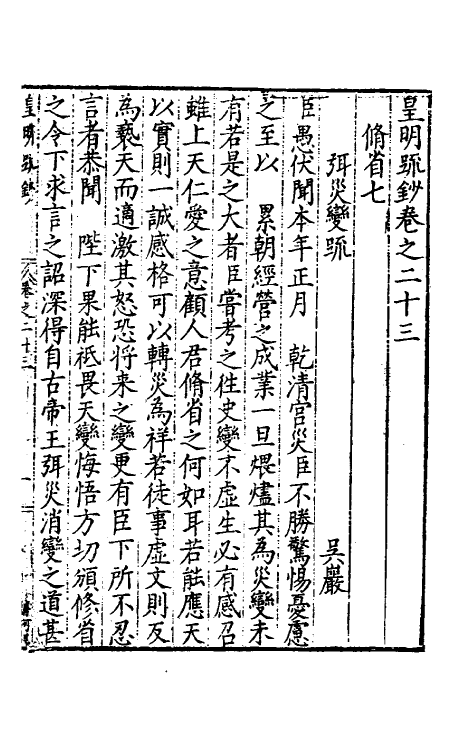 皇明疏鈔卷之二十三
脩省七
弭災變疏
吳巖
臣愚伏聞本年正月　乾清宮災臣不勝驚惕憂慮
之至以　累朝經營之成業一旦煨燼其為災變未
有若是之大者臣嘗考之徃史變不虛生必有感召
雖上天仁愛之意顧人君脩省之何如耳若能應天
以實則一誠感格可以轉災為祥若徒事虛文則反
為褻天而適激其怒恐將来之變更有臣下所不忍
言者恭聞　陛下果能祗畏天變悔悟方切頒修省
之令下求言之詔深得自古帝王弭災消變之道甚
皇明疏鈔
卷之二十三